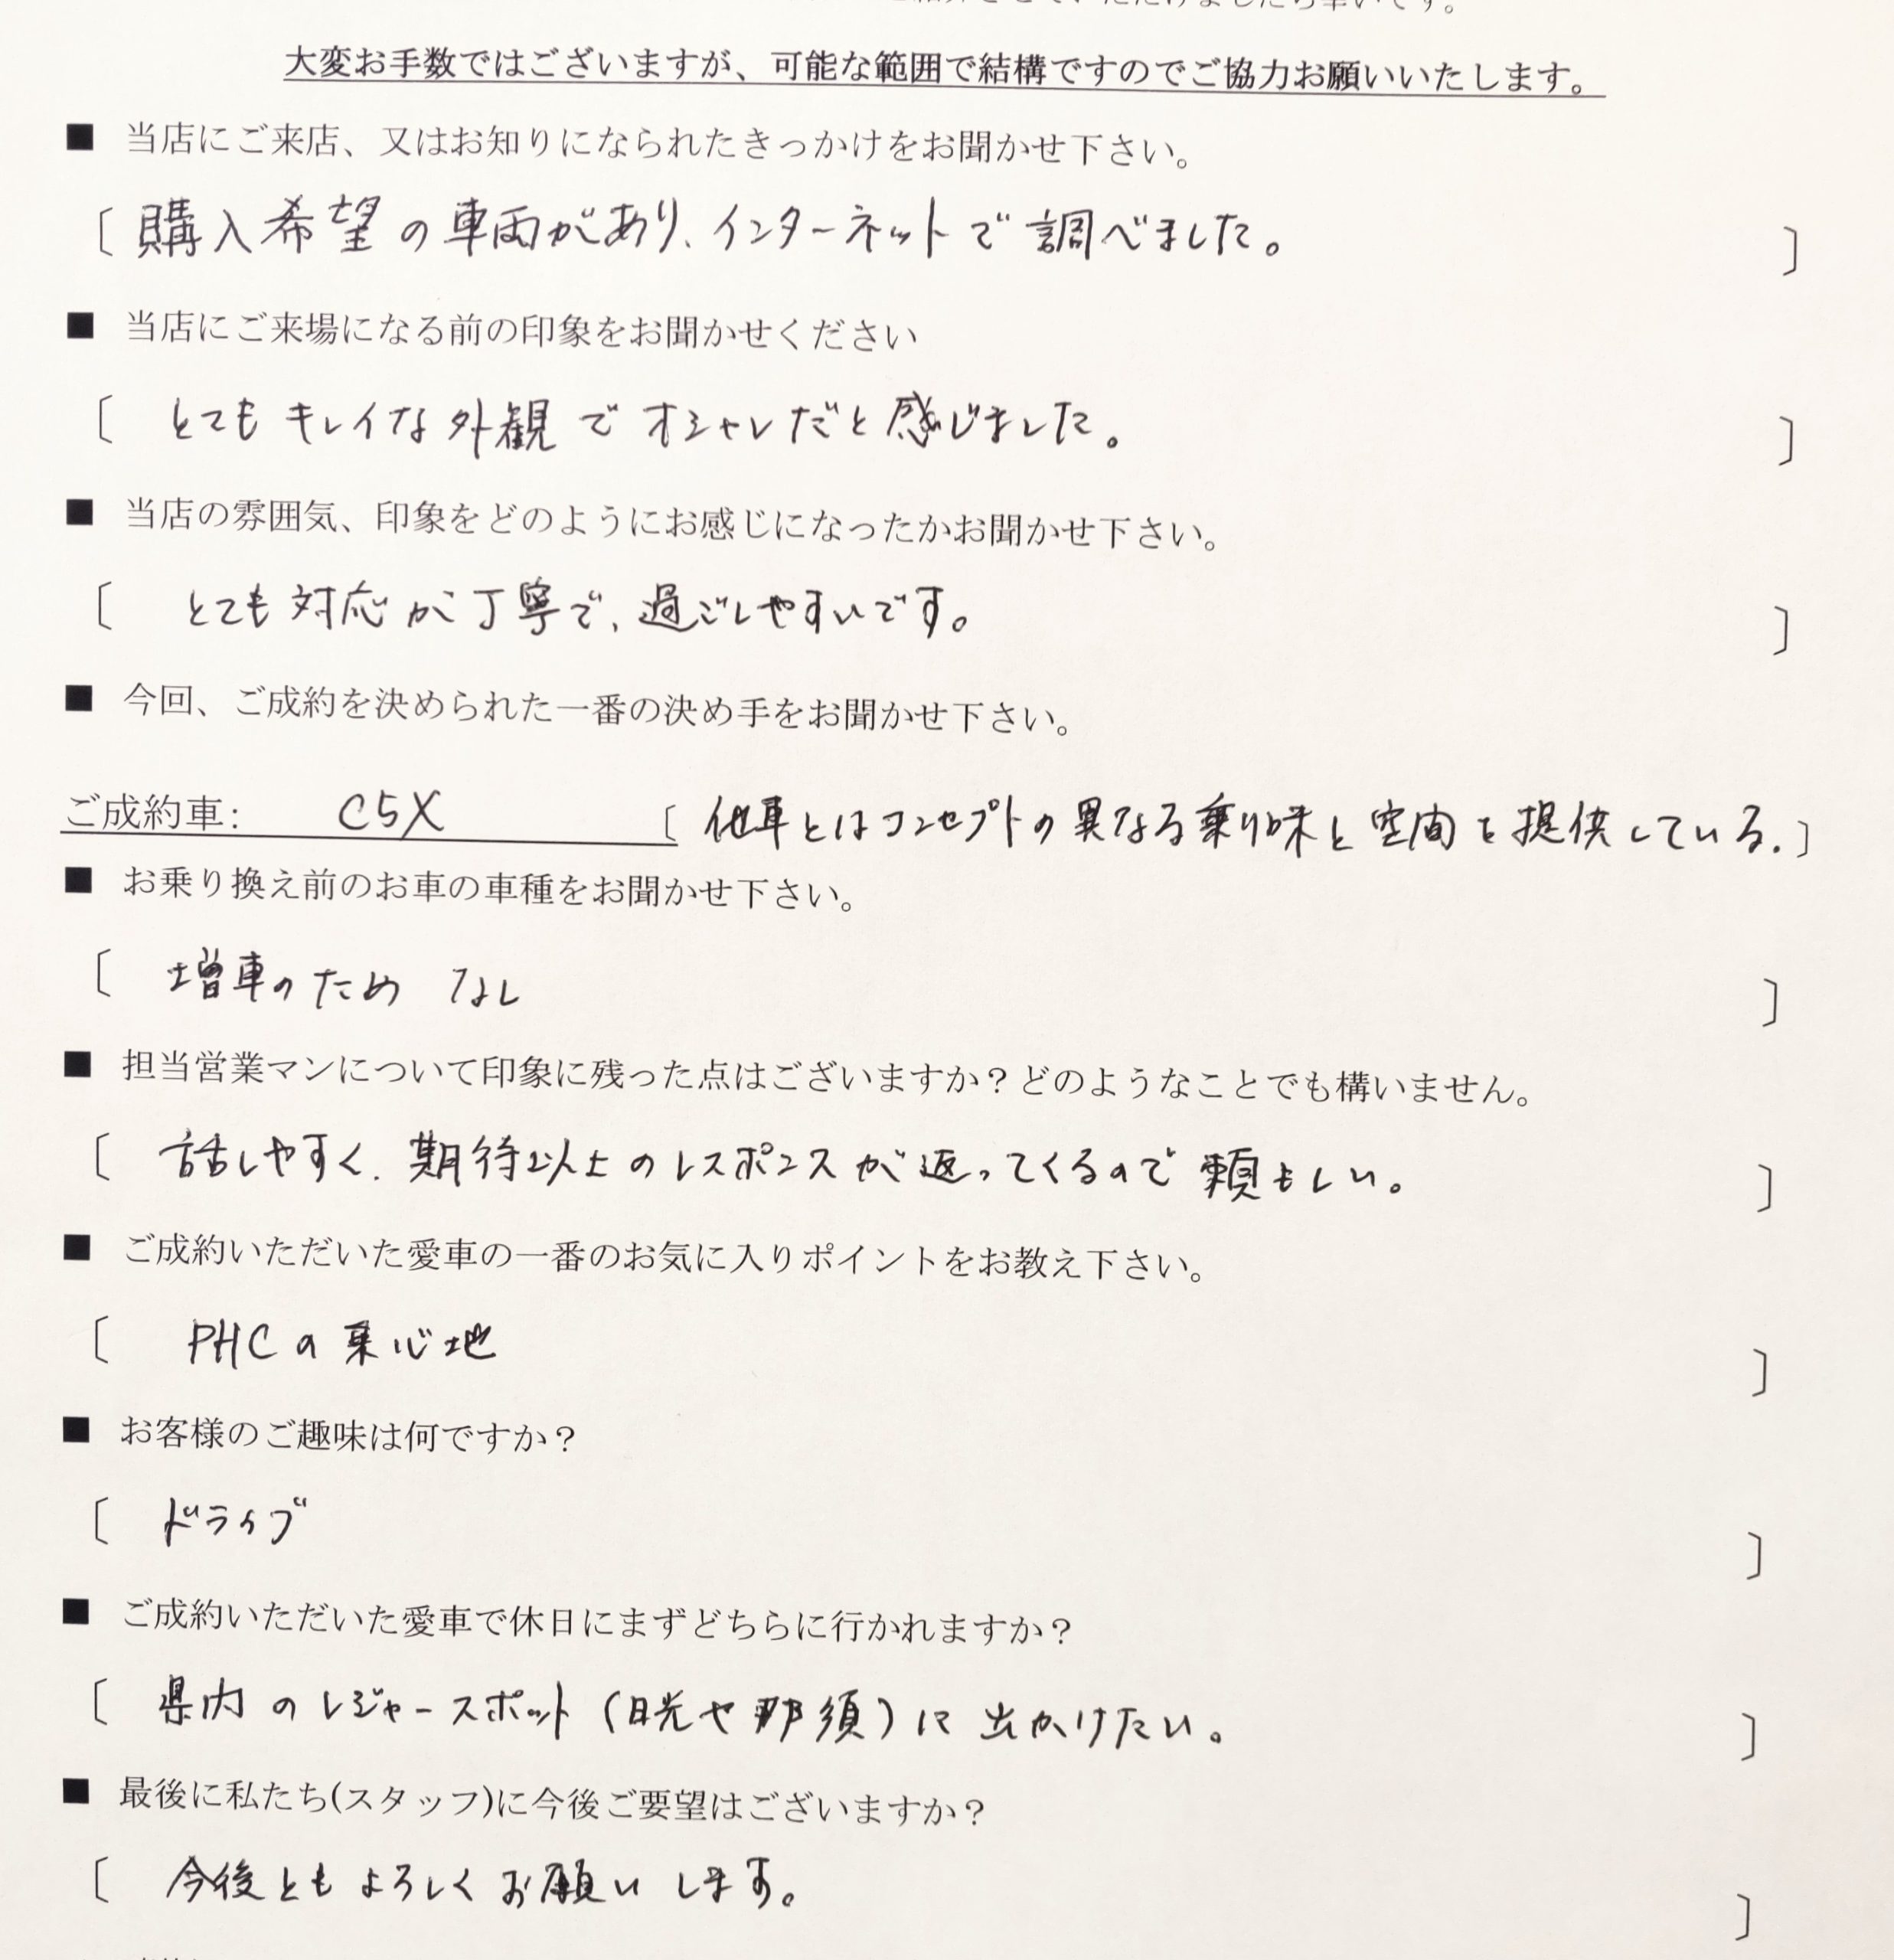 大変お手数ではございますが、可能な範囲で結構ですのでご協力お願いいたします。
■ 当店にご来店、又はお知りになられたきっかけをお聞かせ下さい。
〔 購入希望の車両があり、インターネットで調べました。 〕
■ 当店にご来場になる前の印象をお聞かせください
〔 とてもキレイな外観でオシャレだと感じました。 〕
■ 当店の雰囲気、印象をどのようにお感じになったかお聞かせ下さい。
〔 とても対応が丁寧で、過ごしやすいです。 〕
■ 今回、ご成約を決められた一番の決め手をお聞かせ下さい。
ご成約車: C5X 〔 他車とはコンセプトの異なる乗り味と空間を提供している. 〕
■ お乗り換え前のお車の車種をお聞かせ下さい。
〔 増車のため なし 〕
■ 担当営業マンについて印象に残った点はございますか？どのようなことでも構いません。
〔 話しやすく、期待以上のレスポンスが返ってくるので頼もしい。 〕
■ ご成約いただいた愛車の一番のお気に入りポイントをお教え下さい。
〔 PHCの乗心地 〕
■ お客様のご趣味は何ですか？
〔 ドライブ 〕
■ ご成約いただいた愛車で休日にまずどちらに行かれますか？
〔 県内のレジャースポット(日光や那須)に出かけたい。 〕
■ 最後に私たち(スタッフ)に今後ご要望はございますか？
〔 今後ともよろしくお願いします。 〕